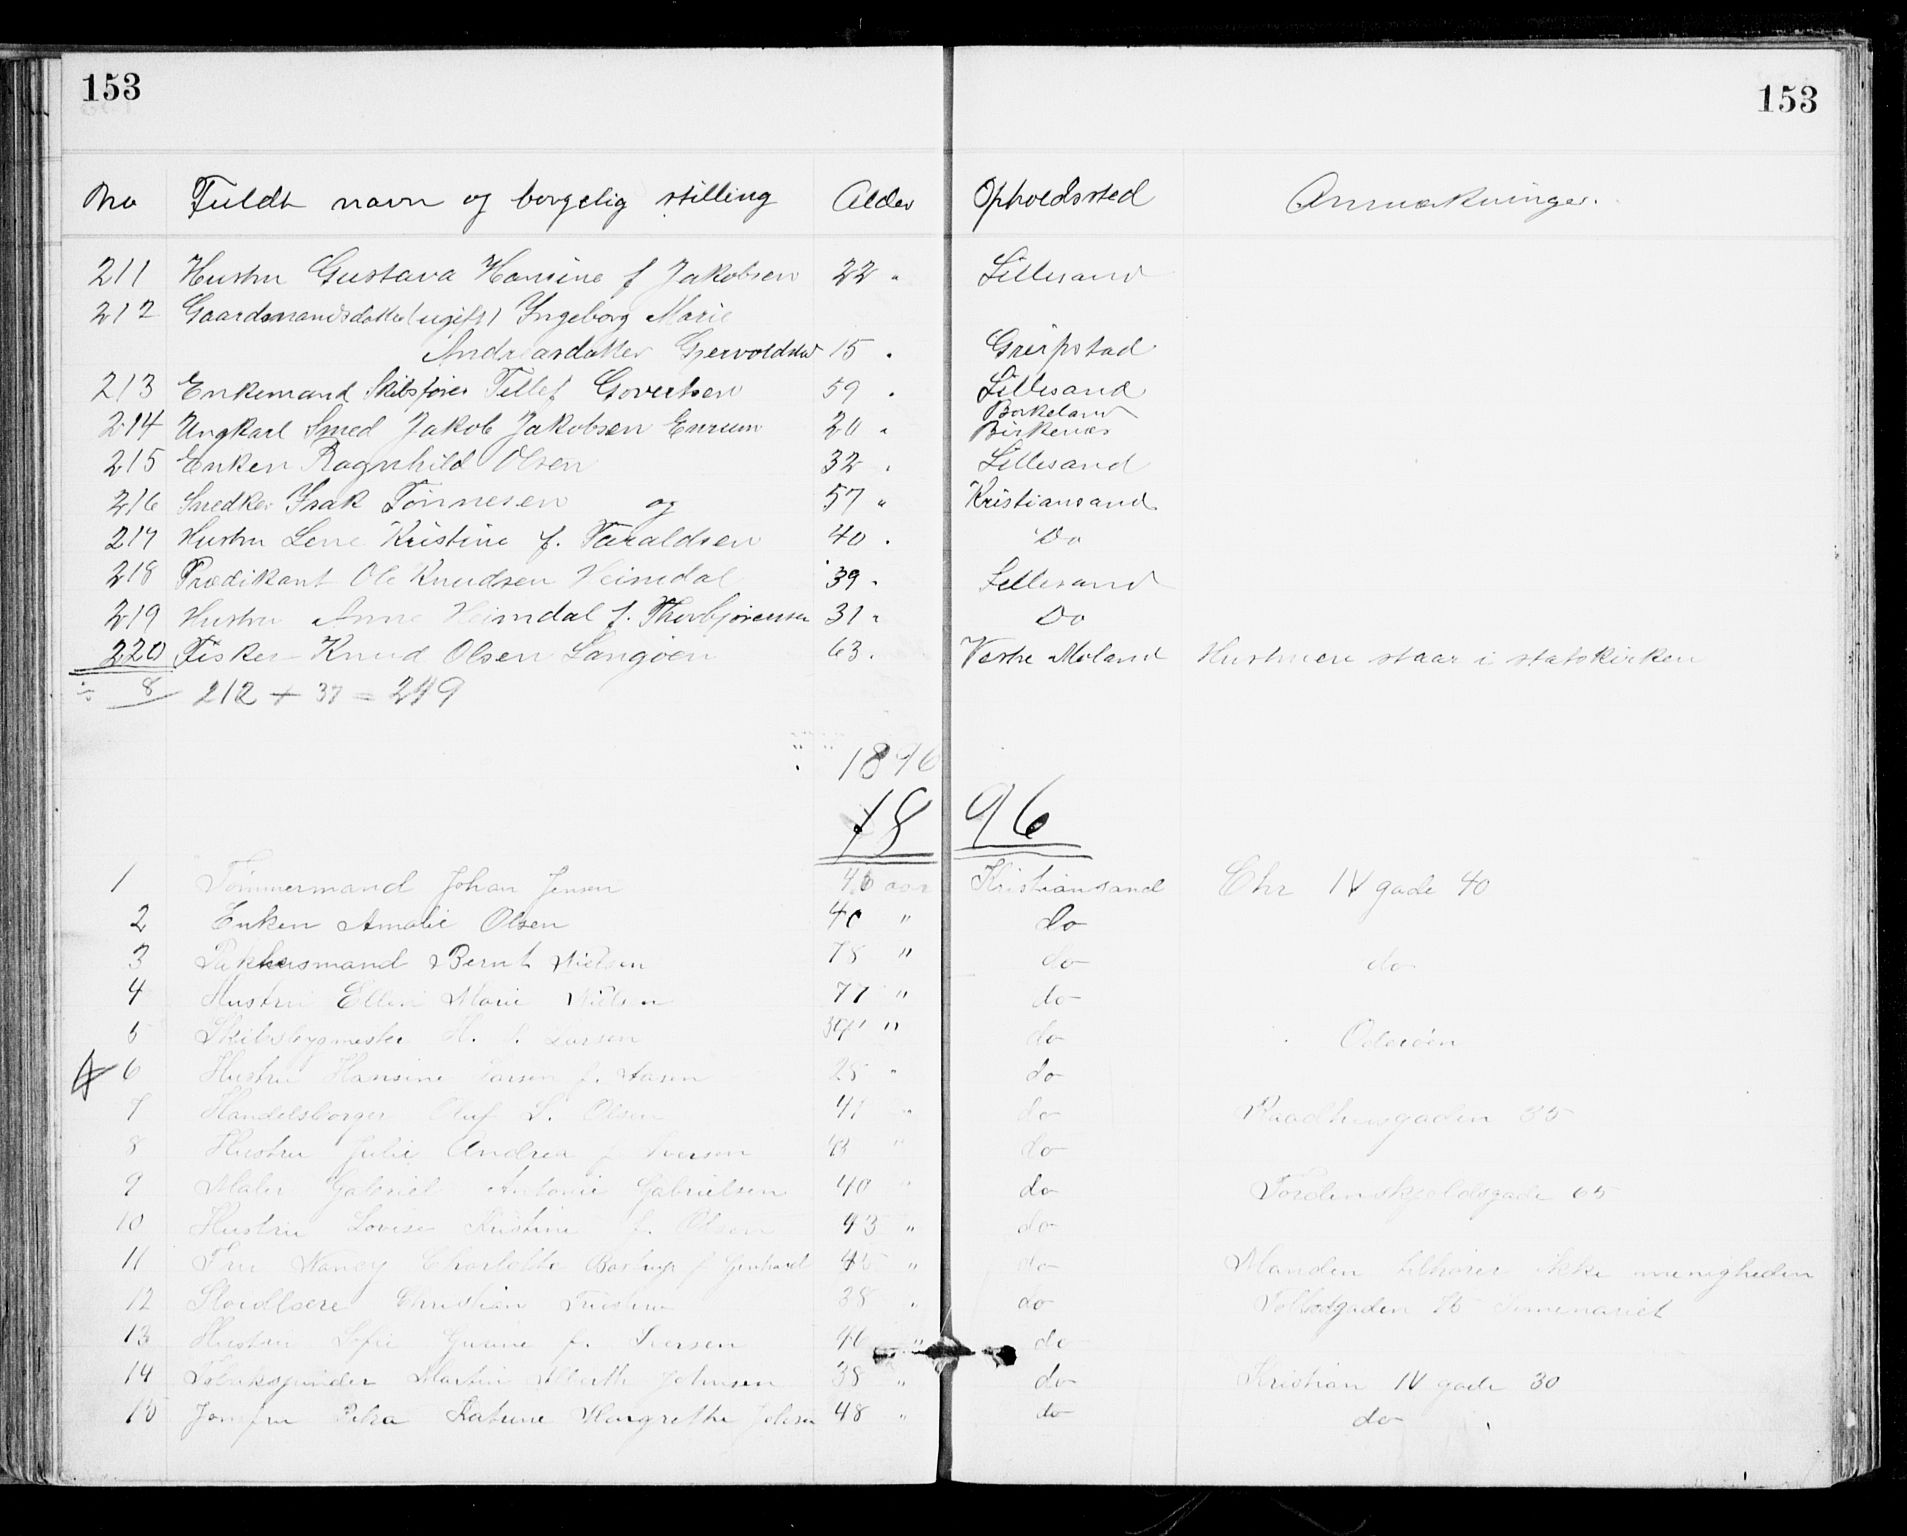 153 153
No Fuldt navn og borgelig stilling Alder Opholdssted Anmærkninger.
211 Hustru Gustava Hansine f Jakobsen 22 " Lillesand
212 Gaardmandsdatter (ugift) Ingeborg Marie
Andreasdatter 15 " Greipstad
213 Enkemand Skibsfører Tellef Govertsen 59 " Lillesand
Birkeland
214 Ungkarl Smed Jakob Jakobsen 20 " Birkenæs
215 Enken Ragnhild Olsen 32 " Lillesand
216 Snedker Isak Tønnesen og 57 " Kristiansand
217 Hustru Lene Kristine f. Taraldsen 40 " Do
218 Prædikant Ole Knudsen Heimdal 39 " Lillesand
219 Hustru Anne Heimdal f. Thorbjørensen 31 " Do
220 Fisker Knud Olsen Langøen 63 " Vestre Moland Hustruen staar i statskirken
÷ 8 212 + 37 = 249
1896
1896
1 Tømmermand Johan Jensen 46 aar Kristiansand Chr IV gade 40
2 Enken Amalie Olsen " do
3 Pakhusmand Bernt Nielsen 78 " do do
4 Hustru Ellen Marie Nielsen 77 " do
5 Skibsbygmester H. Larsen " do Odderøen
6 Hustru Hansine Larsen f. Aasen 25 " do
7 Handelsborger Oluf S. Olsen 41 " do Raadhusgaden 35
8 Hustru Julie Andrea f Iversen " do
9 Maler Gabriel Antonie Gabrielsen 40 " do Tordenskjoldsgade 65
10 Hustru Lovise Kristine f. Olsen 43 " do
11 Fru Nancy Charlotte f 45 " do Manden tilhører ikke menigheden
12 Christian 38 " do 75
13 Hustru Sofie f. Iversen 46 " do
14 Martin Johnsen 38 " do Kristian IV gade 30
15 Jomfru Petra Katrine Margrethe 48 " do do